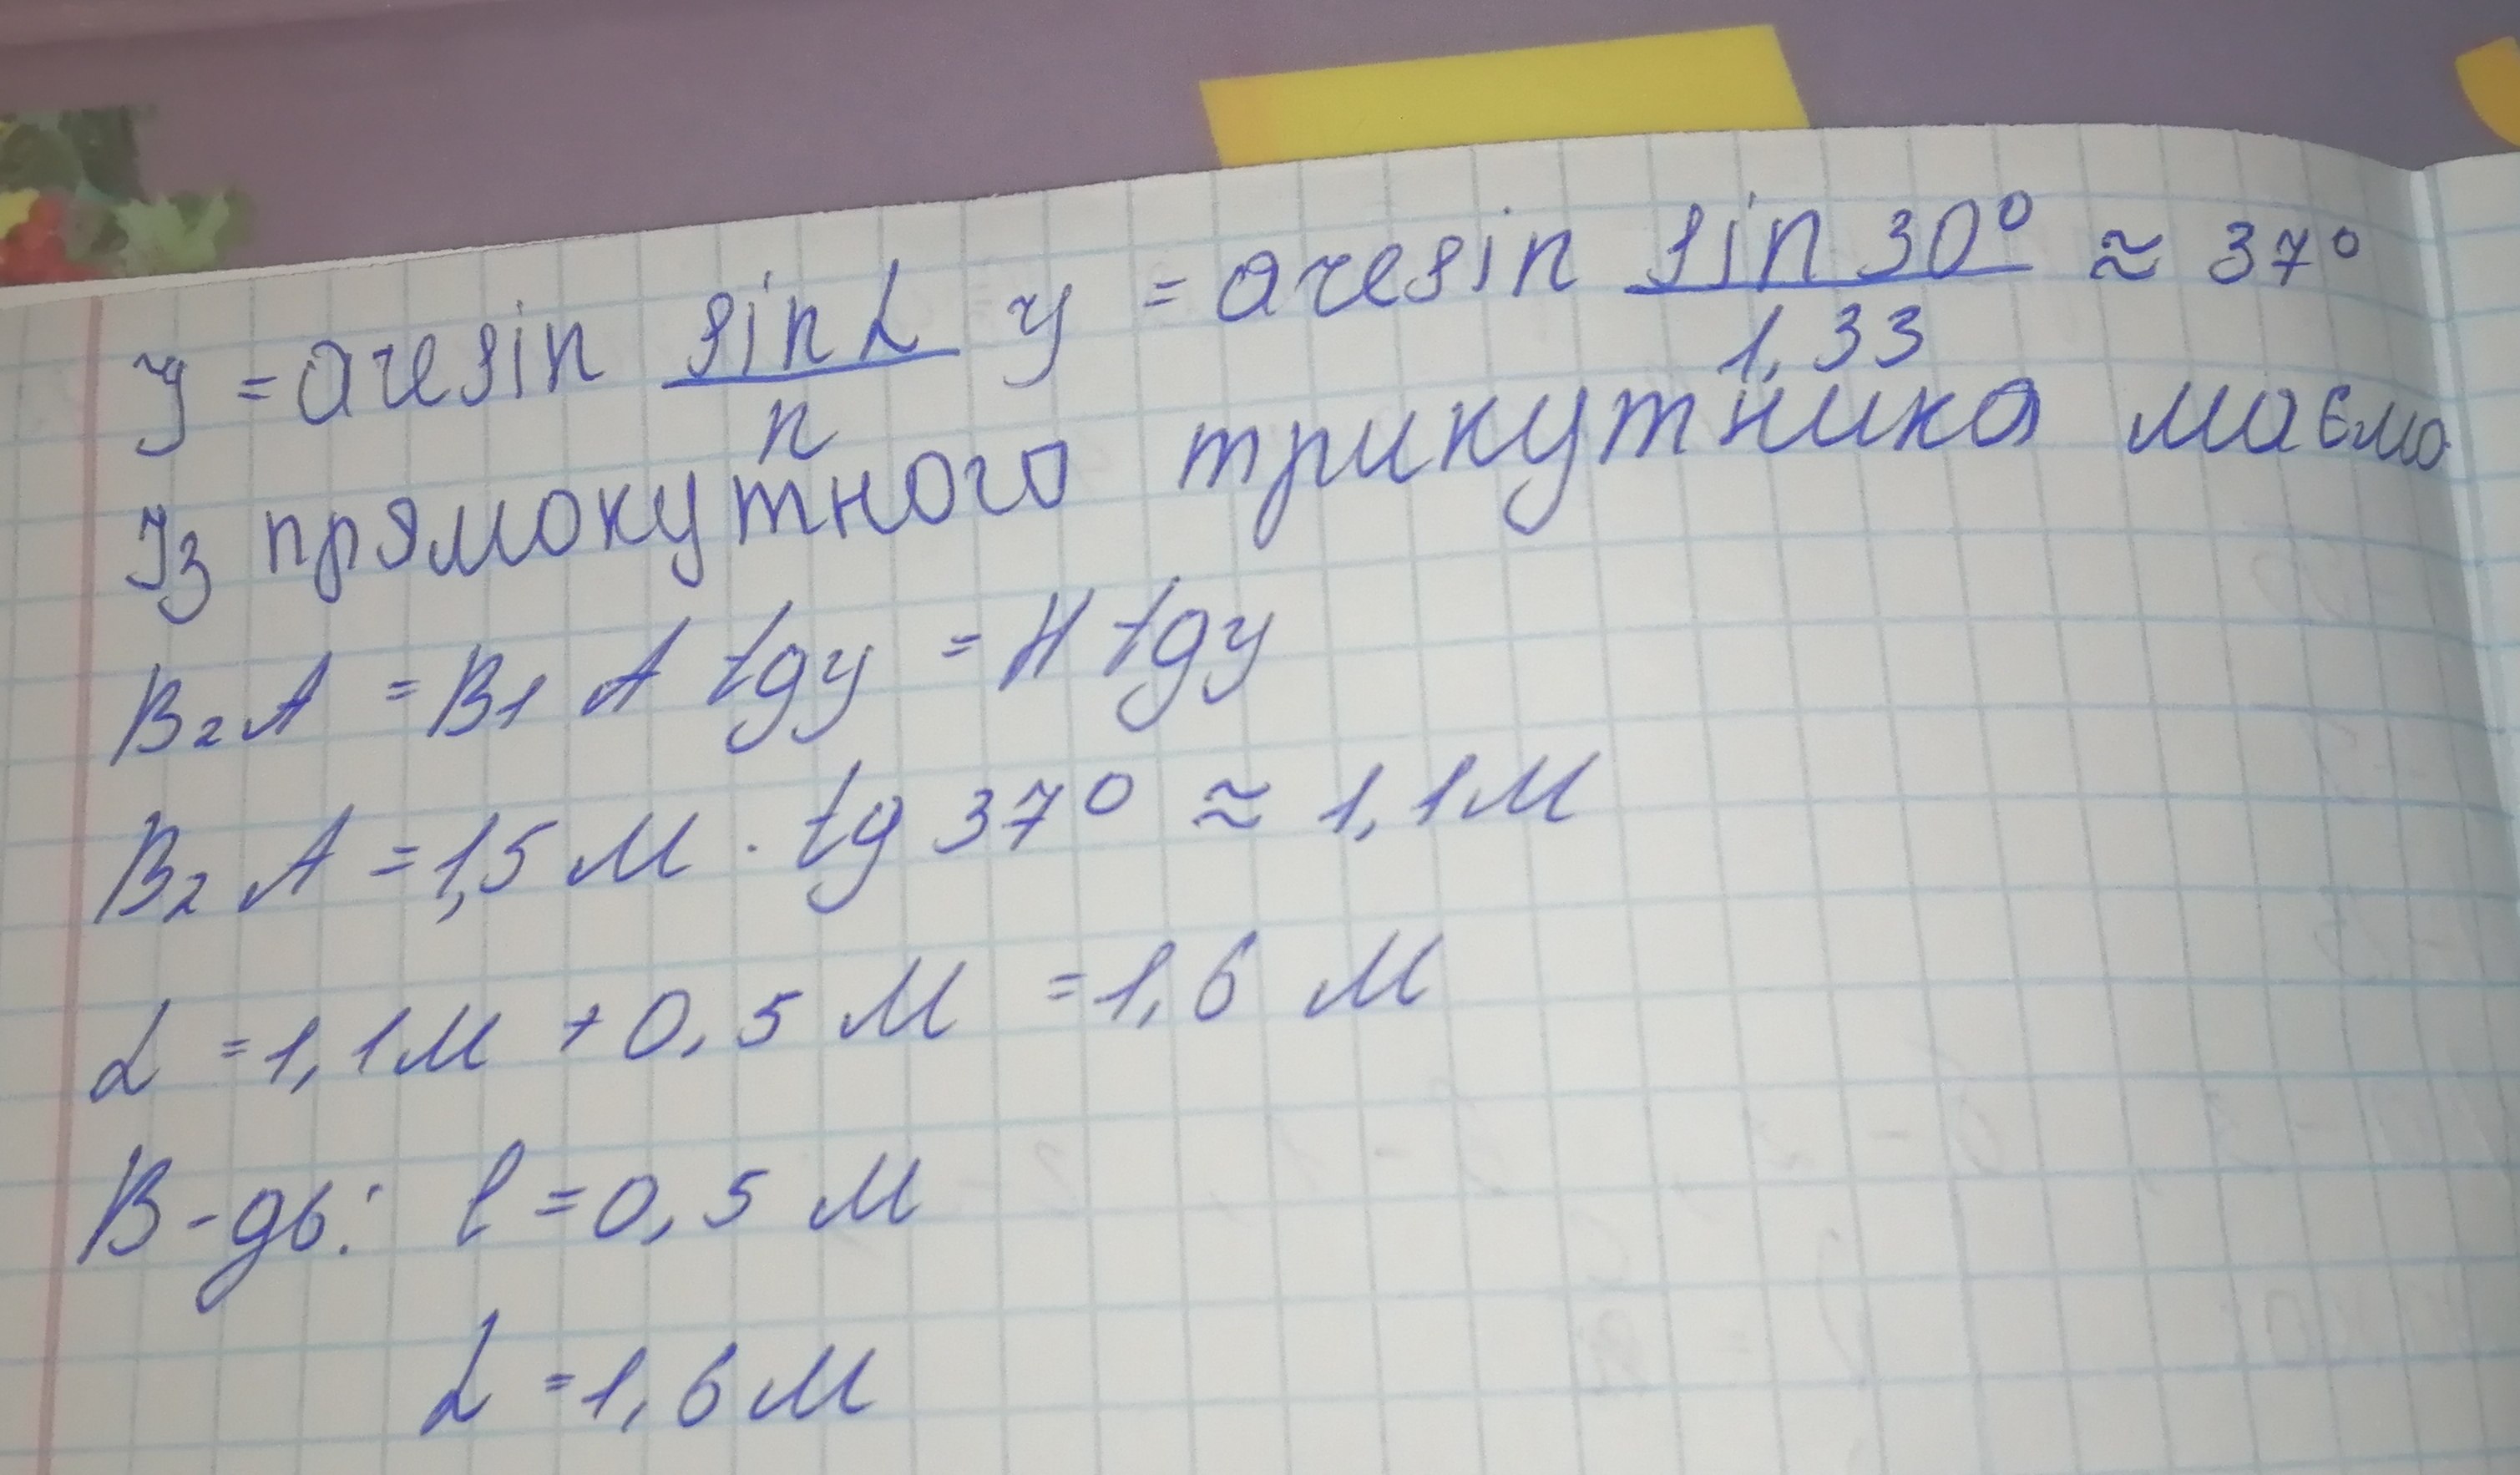 γ = arcsin sin α / n γ = arcsin sin 30° / 1,33 ≈ 37°
Із прямокутного трикутника маємо
B₂A = B₁A tgγ = H tgγ
B₂A = 1,5 м · tg 37° ≈ 1,1 м
L = 1,1 м + 0,5 м = 1,6 м
В-дь: l = 0,5 м
L = 1,6 м